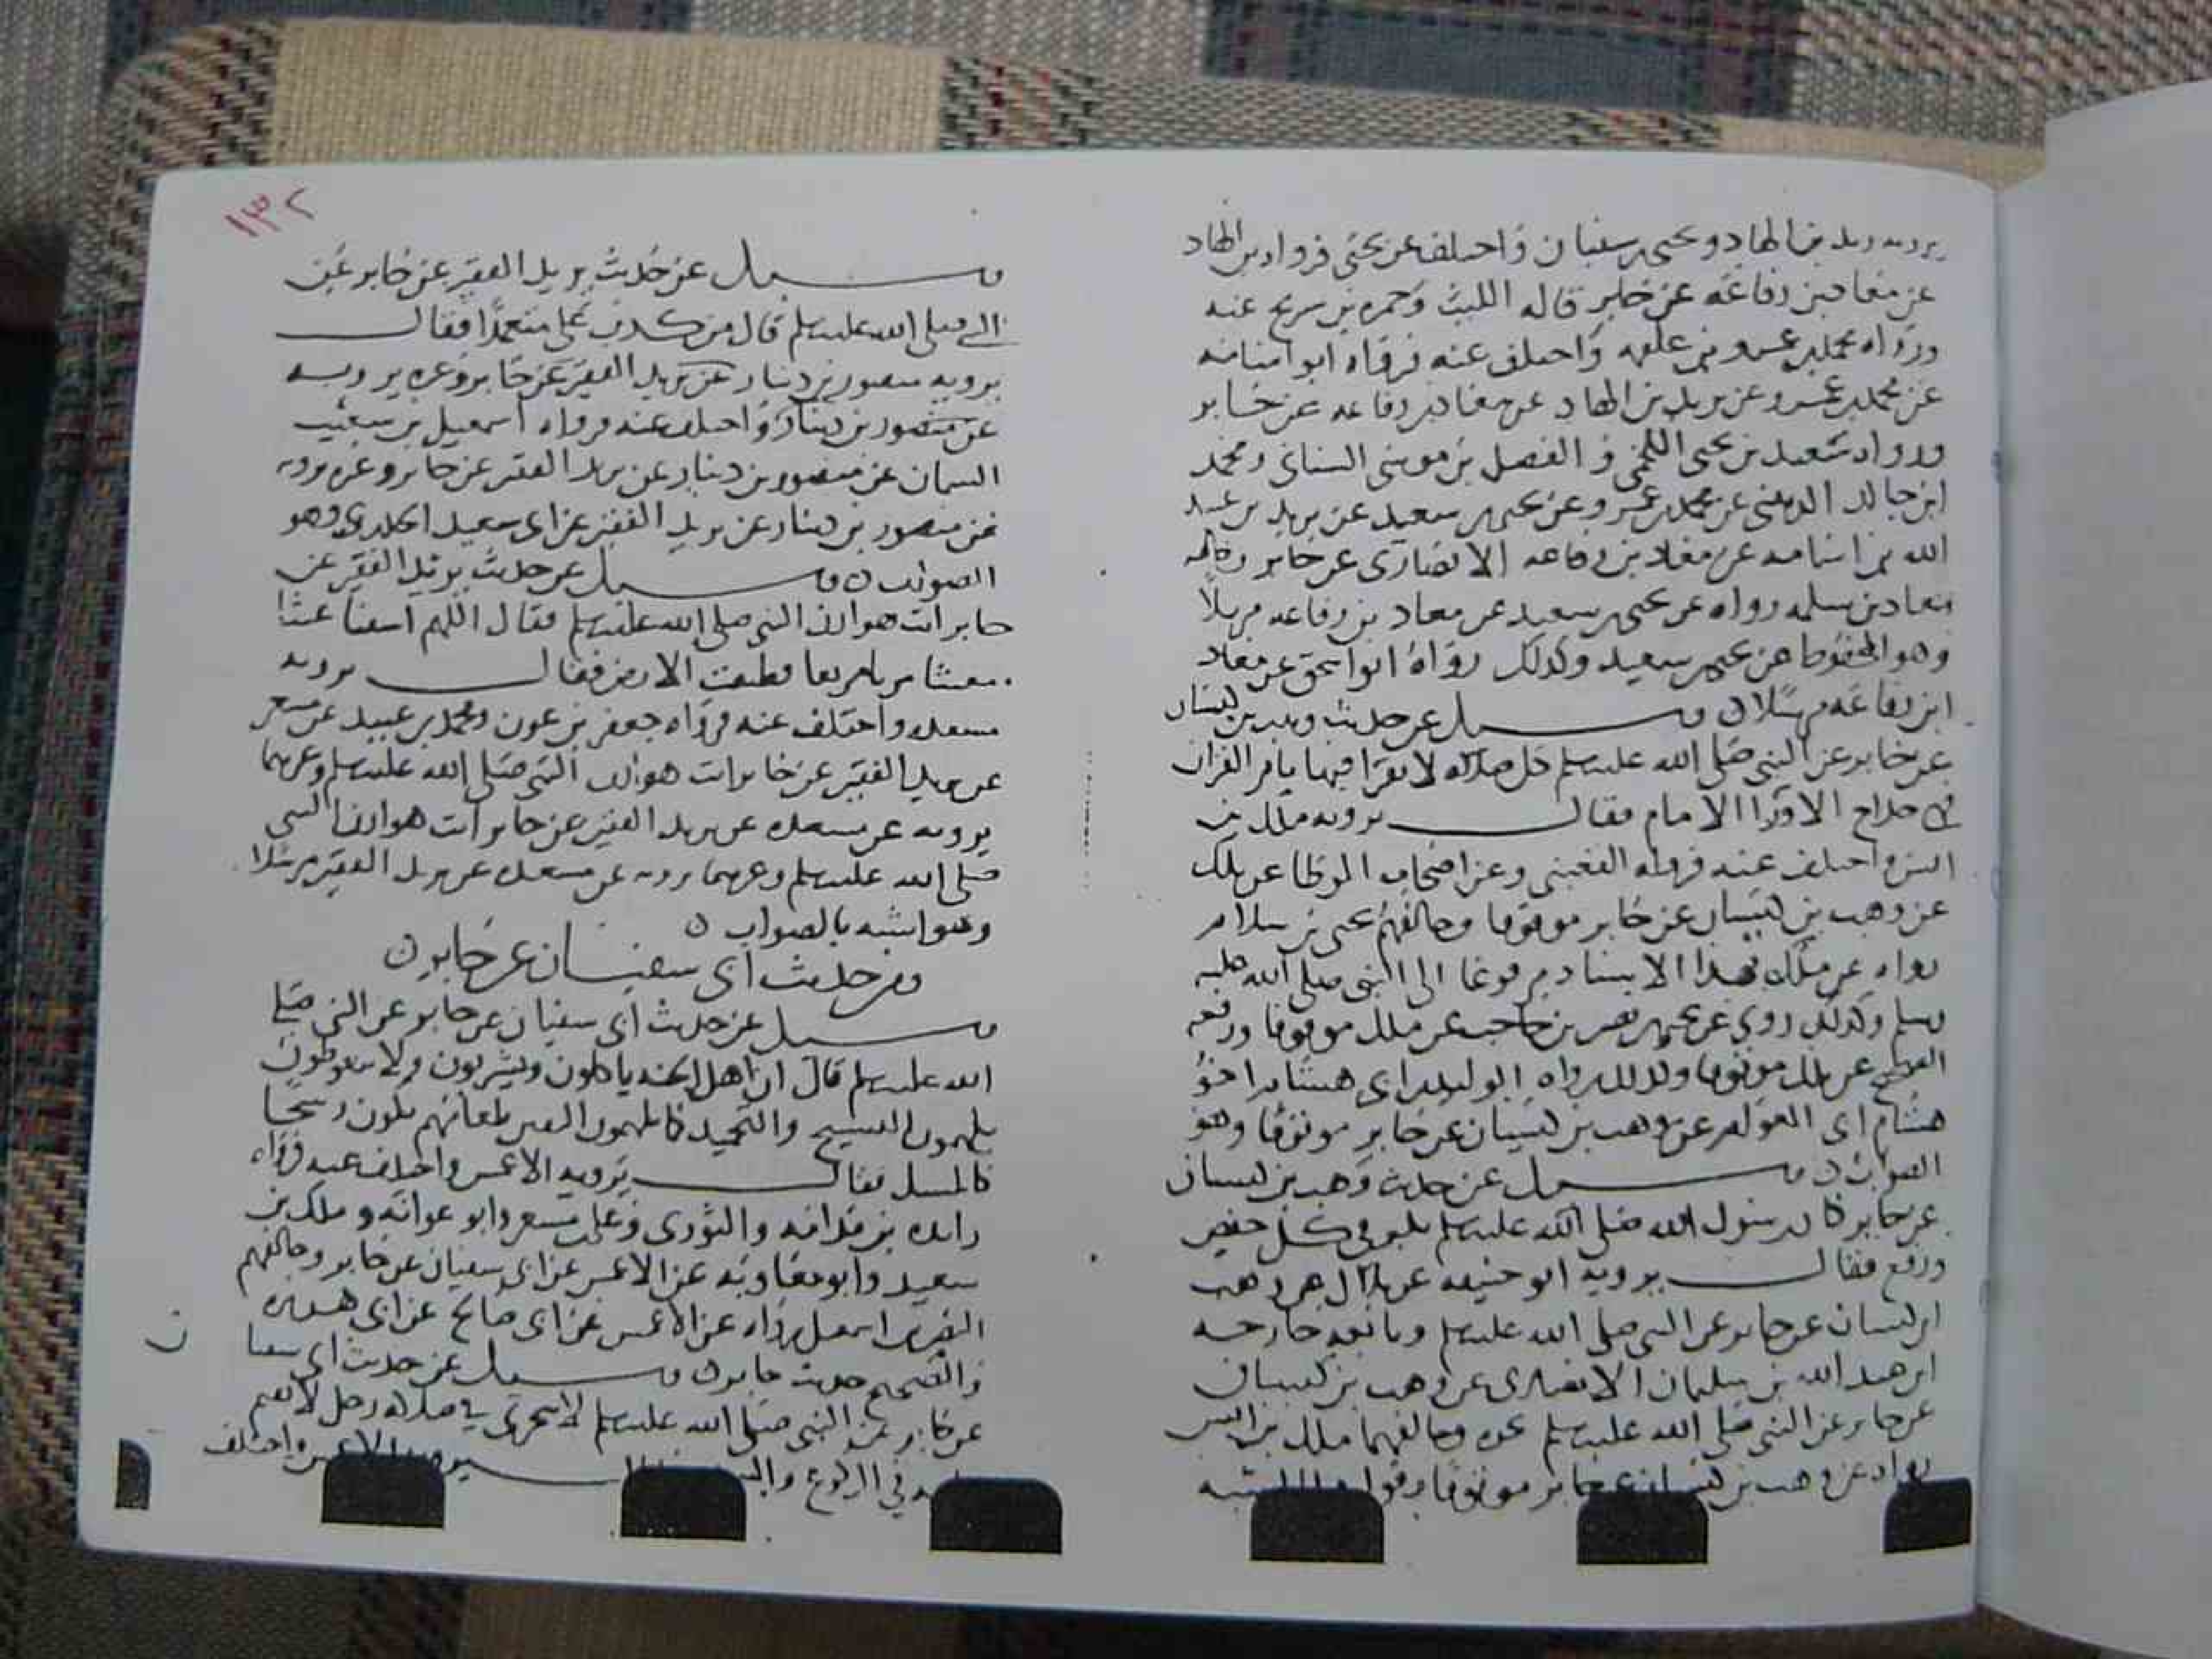 يرويه يزيد بن الهاد ويحيى بن سفيان واختلف عن يحيى فرواه ابن الهاد
عن معاذ بن رفاعة عن جابر قاله الليث وحيوة بن شريح عنه
ورواه محمد بن عمرو بن علقمة واختلف عنه فرواه ابو اسامة
عن محمد بن عمرو عن يزيد بن الهاد عن معاذ بن رفاعه عن جابر
ورواه سعيد بن يحيى اللخمي و الفضل بن موسى السيناني ومحمد
ابن خالد الوهبي عن محمد بن عمرو عن يحيى بن سعيد عن يزيد بن عبد
الله بن اسامه عن معاذ بن رفاعه الانصارى عن جابر وخالفه
بن سلمه رواه عن يحيى بن سعيد عن معاذ بن رفاعه مرسلا
وهو المحفوظ عن يحيى بن سعيد وكذلك رواه ابن اسحق عن معاذ
ابن رفاعه مرسلا ن وسيل عن حديث وهب بن كيسان
عن جابر عن النبى صلى الله عليه وسلم كل صلاة لا يقرا فيها بام القران
فهي خداج الا ورا الامام فقال يرويه ملك بن
انس واختلف عنه فرواه القعنبى وعن اصحاب الموطا عن ملك
عن وهب بن كيسان عن جابر موقوفا وخالفهم يحيى بن سلام
رواه عن ملك بهذا الاسناد مرفوعا الى النبى صلى الله عليه
وسلم وكذلك روى عن يحيى بن نصر بن حاجب عن ملك موقوفا ورفعه
عن ملك موقوفا وكذلك رواه ابو ابى هشام اخو
هشام ابى عن وهب بن كيسان عن جابر موقوفا وهو
الصواب ن وسيل عن حديث وهب بن كيسان
عن جابر كان رسول الله صلى الله عليه وسلم يكبر فى كل خفض
ورفع فقال يرويه ابو حنيفه عن بلال عن وهب
ابن كيسان عن جابر عن النبى صلى الله عليه وسلم وتابعه خارجه
ابن عبد الله بن سليمان الانصارى عن وهب بن كيسان
عن جابر عن النبى صلى الله عليه وسلم نحوه وخالفهما ملك بن انس
رواه عن وهب بن كيسان عن جابر موقوفا وقول ملك اشبه
١٣٢
وسيل عن حديث يزيد الفقير عن جابر عن
النبي صلى الله عليه وسلم قال من كذب على متعمدا فقال
يرويه منصور بن دينار عن يزيد الفقير عن جابر وغيره يرويه
عن منصور بن دينار واختلف عنه فرواه اسمعيل بن شعيب
السمان عن منصور بن دينار عن يزيد الفقير عن جابر وغيره يرويه
عن منصور بن دينار عن يزيد الفقير عن ابى سعيد الخدرى وهو
الصواب ن وسيل عن حديث يزيد الفقير عن
جابر اتت هوازن النبى صلى الله عليه وسلم فقال اللهم اسقنا غيثا
مغيثا مريا مريعا فطبقت الارض فقال يرويه
مسعر واختلف عنه فرواه جعفر بن عون ومحمد بن عبيد عن مسعر
عن يزيد الفقير عن جابر اتت هوازن النبى صلى الله عليه وسلم وغيرهما
يرويه عن مسعر عن يزيد الفقير عن جابر اتت هوازن النبى
صلى الله عليه وسلم وغيرهما يرويه عن مسعر عن يزيد الفقير مرسلا
وهو اشبه بالصواب ن
ومن حديث ابى سفيان عن جابر ن
وسيل عن حديث ابى سفيان عن جابر عن النبى صلى
الله عليه وسلم قال ان اهل الجنه ياكلون ويشربون ولا يتغوطون
يلهمون التسبيح والتحميد كما يلهمون النفس طعامهم يكون رشحا
كالمسك فقال يرويه الاعمش واختلف عنه فرواه
زايده بن قدامه والثورى وعلى بن مسهر وابو عوانه وملك بن
سعيد وابو معاويه عن الاعمش عن ابى سفيان عن جابر وخالفهم
النضر بن اسمعيل رواه عن الاعمش عن ابى صالح عن ابى هريره
والصحيح حديث جابر ن وسيل عن حديث ابى سفيا
ن
عن جابر عن النبى صلى الله عليه وسلم لا تجزى صلاة رجل لا يقيم
في الركوع يرويه الاعمش واختلف